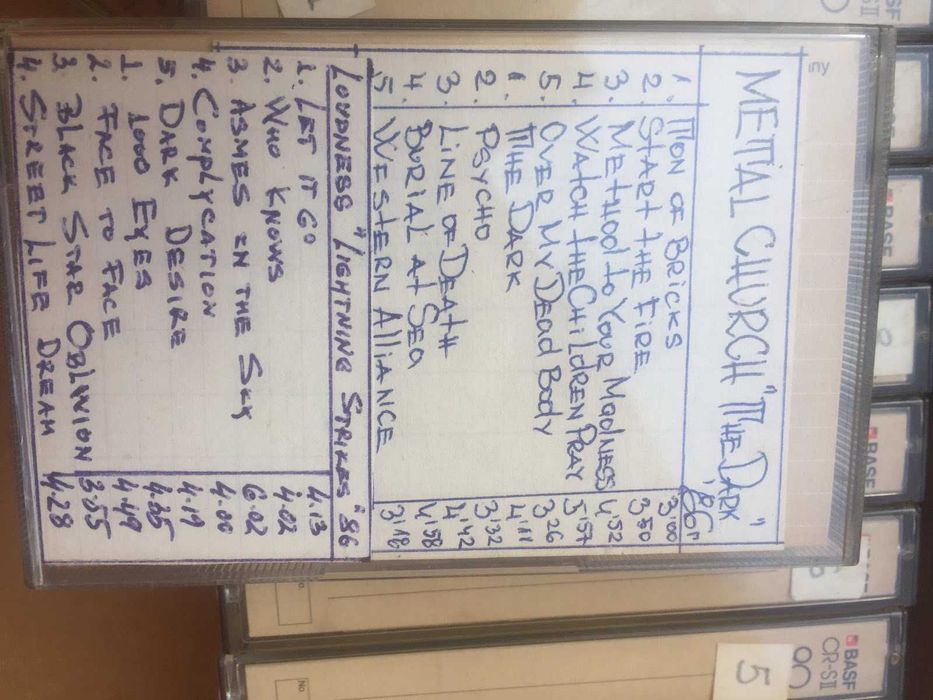 METAL CHURCH "THE DARK"
86г
1. TTON OF BRICKS 3'00
2. START THE FIRE 3'50
3. METHOD to YOUR MADNESS 4'52
4. WATCH THE CHILDREN PRAY 5'57
5. OVER MY DEAD BODY 3'26
1. THE DARK 4'11
2. PSYCHO 3'32
3. LINE OF DEATH 4'42
4. BURIAL AT SEA 4'58
5 WESTERN ALLIANCE 3'18
LOUDNESS "LIGHTNING STRIKES" 86
1. LET IT GO 4.13
2. WHO KNOWS 4.02
3. ASMES IN THE SKY 6.02
4. COMPLYCATION 4.00
5. DARK DESIRE 4.19
1. 1000 EYES 4.05
2. FACE TO FACE 4.49
3. BLACK STAR OBLIVION 3.55
4. STREET LIFE DREAM 4.28
BASF
CR-SII
90
5
No.
BASF
BASF
BASF
No.